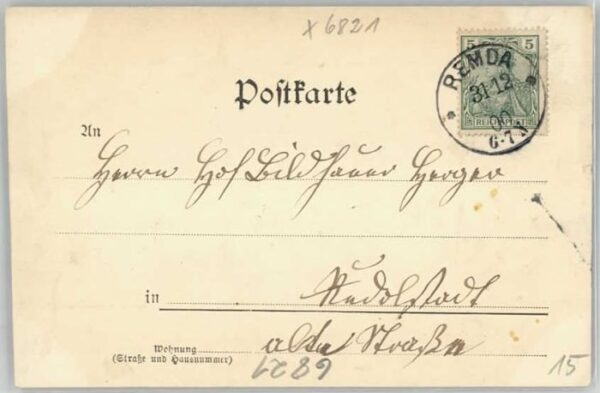 x 6821
5 5
REMDA
31.12.
00
6-7N
REICHSPOST
Postkarte
An
Herrn Hof Bildhauer Herger
in Rudolstadt
Wohnung alte Straße
(Straße und Hausnummer)
6821
15